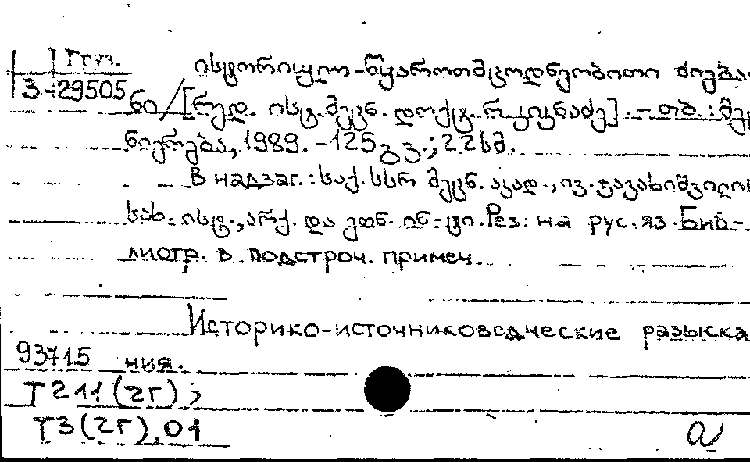 Груз.
3-29505
ისტორიულ-წყაროთმცოდნეობითი ძიება-
ნი / [რედ. ისტ. მეცნ. დოქტ. რ. კიკნაძე]. - თბ. : მეც
ნიერება, 1989. - 125 გვ. ; 22 სმ.
В надзаг.: საქ. სსრ მეცნ. აკად., ივ. ჯავახიშვილის
სახ. ისტ., არქ. და ეთნ. ინ-ტი. Рез: на рус. яз. Биб-
лиогр. в подстроч. примеч.
Историко-источниковедческие разыска
93715 ния.
Т211(2Г);
Т3(2Г),01
а